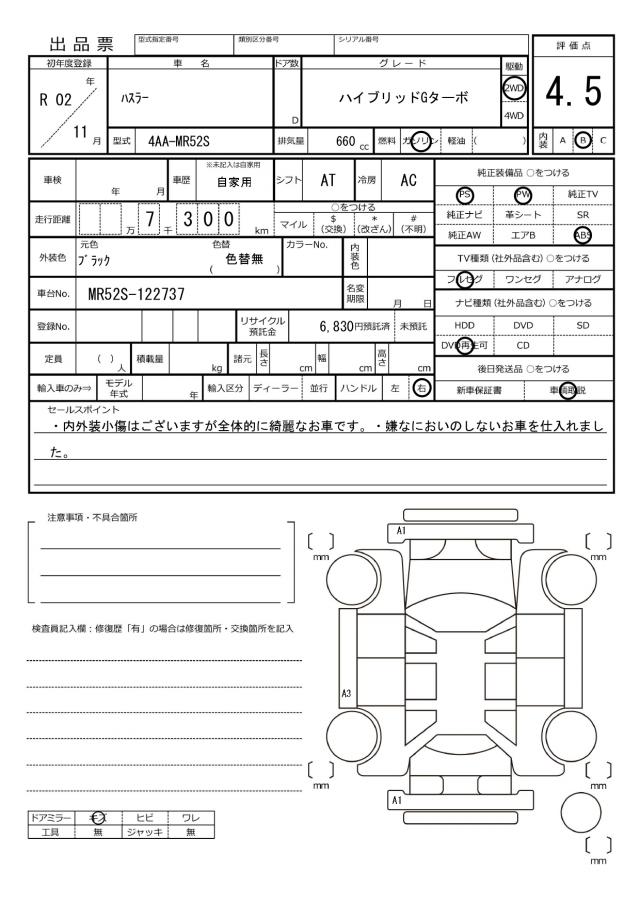 出品票 型式指定番号 類別区分番号 シリアル番号 評価点
初年度登録 車名 ドア数 グレード 駆動
R 02 年 ハスラー D ハイブリッドGターボ 2WD 4.5
4WD
11 月 型式 4AA-MR52S 排気量 660 cc 燃料 ガソリン 軽油 ( ) 内装 A B C
車検 年 月 車歴 ※未記入は自家用 自家用 シフト AT 冷房 AC 純正装備品 ○をつける
PS PW 純正TV
走行距離 万 7 千 300 km ○をつける
マイル $(交換) *(改ざん) #(不明) 純正ナビ 革シート SR
純正AW エアB ABS
外装色 元色 ブラック 色替 ( 色替無 ) カラーNo. 内装色 TV種類(社外品含む)○をつける
フルセグ ワンセグ アナログ
車台No. MR52S-122737 名変期限 月 日 ナビ種類(社外品含む)○をつける
登録No. リサイクル預託金 6,830円預託済 未預託 HDD DVD SD
DVD再生可 CD
定員 ( ) 人 積載量 kg 諸元 長さ cm 幅 cm 高さ cm 後日発送品 ○をつける
輸入車のみ⇒ モデル年式 年 輸入区分 ディーラー 並行 ハンドル 左 右 新車保証書 車輌取説
セールスポイント
・内外装小傷はございますが全体的に綺麗なお車です。・嫌なにおいのしないお車を仕入れまし
た。
注意事項・不具合箇所
A1
mm mm
検査員記入欄：修復歴「有」の場合は修復箇所・交換箇所を記入
A3
mm mm
A1
ドアミラー キズ ヒビ ワレ
工具 無 ジャッキ 無
mm